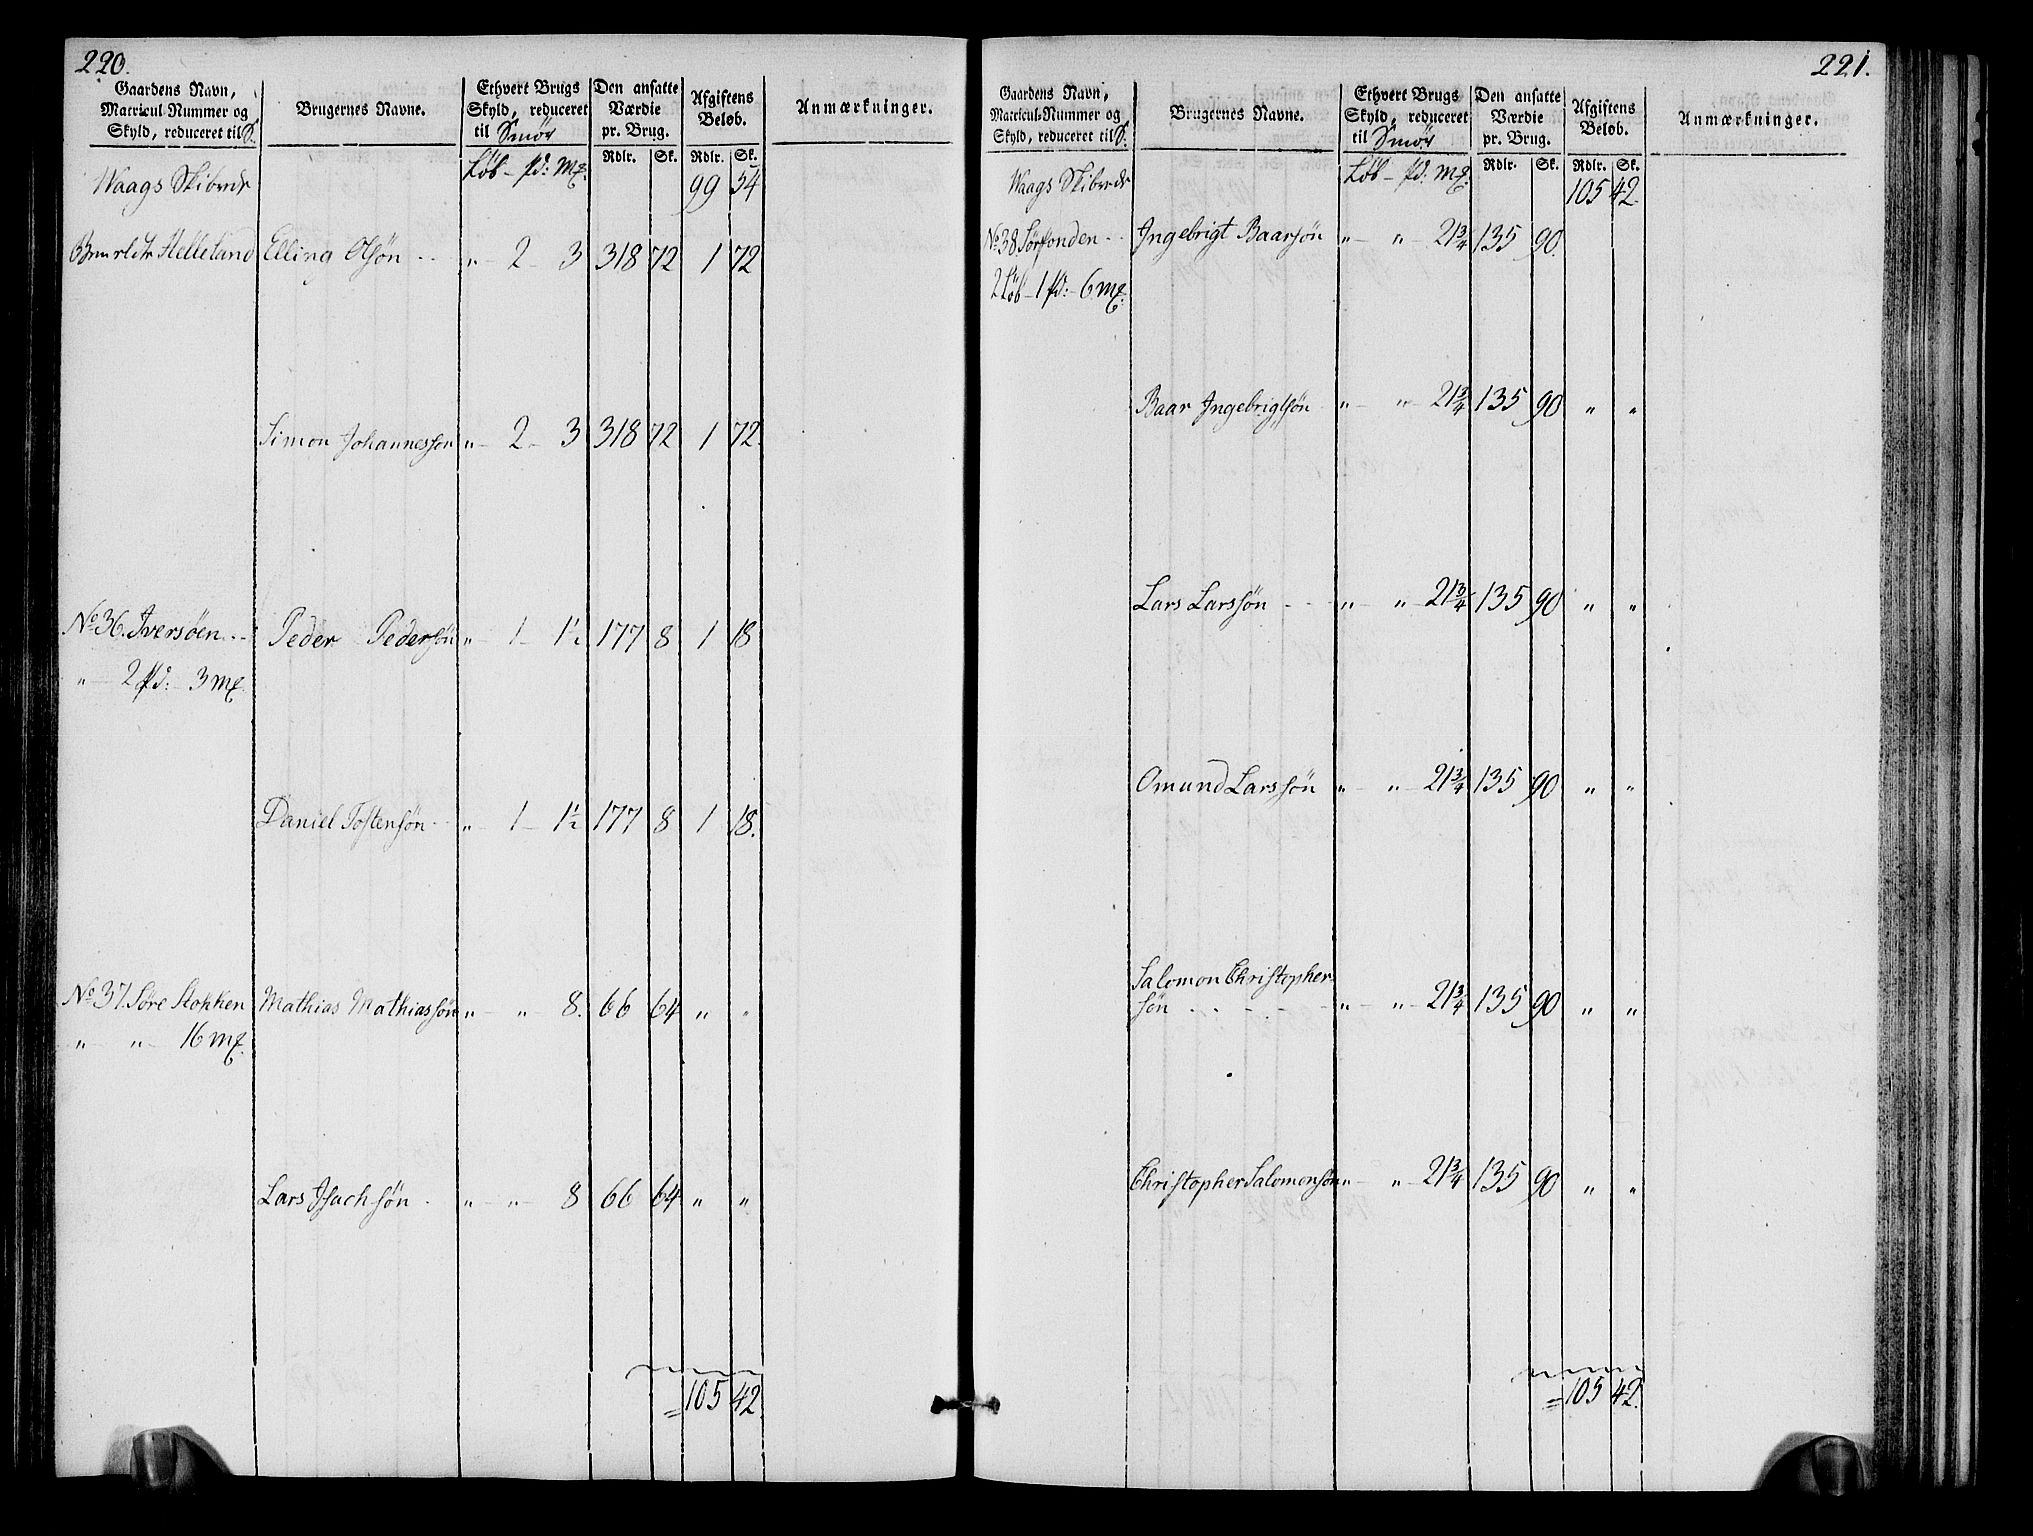 220.
Gaardens Navn, Matricul-Nummer og Skyld, reduceret til S. | Brugernes Navne. | Ethvert Brugs Skyld, reduceret til Smör | Den ansatte Værdie pr. Brug. | Afgiftens Beløb. | Anmærkninger.
Løb – pd: mk: | Rdlr. | Sk. | Rdlr. | Sk.
Waags Skibrede 99 54
Helleland Elling Olsön .. „ – 2 – 3 318 72 1 72
Simon Johannessön „ – 2 – 3 318 72 1 72.
No 36. Iversöen .. Peder Pedersön „ – 1 – 1½ 177 8 1 18
„ – 2 pd: – 3 mk.
Daniel Tostensön .. „ – 1 – 1½ 177 8 1 18.
No 37. Söre Stokken Mathias Mathiassön „ – „ – 8. 66 64 „ „
„ „ – 16 mk.
Lars Isachsön . „ – „ – 8 66 64 „ „
= 105 42.
221.
Gaardens Navn, Matricul-Nummer og Skyld, reduceret til S. | Brugernes Navne. | Ethvert Brugs Skyld, reduceret til Smör | Den ansatte Værdie pr. Brug. | Afgiftens Beløb. | Anmærkninger.
Løb – pd: mk: | Rdlr. | Sk. | Rdlr. | Sk.
Waags Skibrede 105 42.
No 38. Sörfonden .. Ingebrigt Baarsön „ – „ – 21¾ 135 90.
2 Løb – 1 pd: – 6 mk.
Baar Ingebrigtsön „ – „ – 21¾ 135 90 „ „
Lars Larssön ... „ – „ – 21¾ 135 90 „ „
Omund Larssön „ – „ – 21¾ 135 90 „ „
Salomon Christopher-
sön .... „ – „ – 21¾ 135 90 „ „
Christopher Salomonsön „ – „ – 21¾ 135 90 „ „
= 105 42.